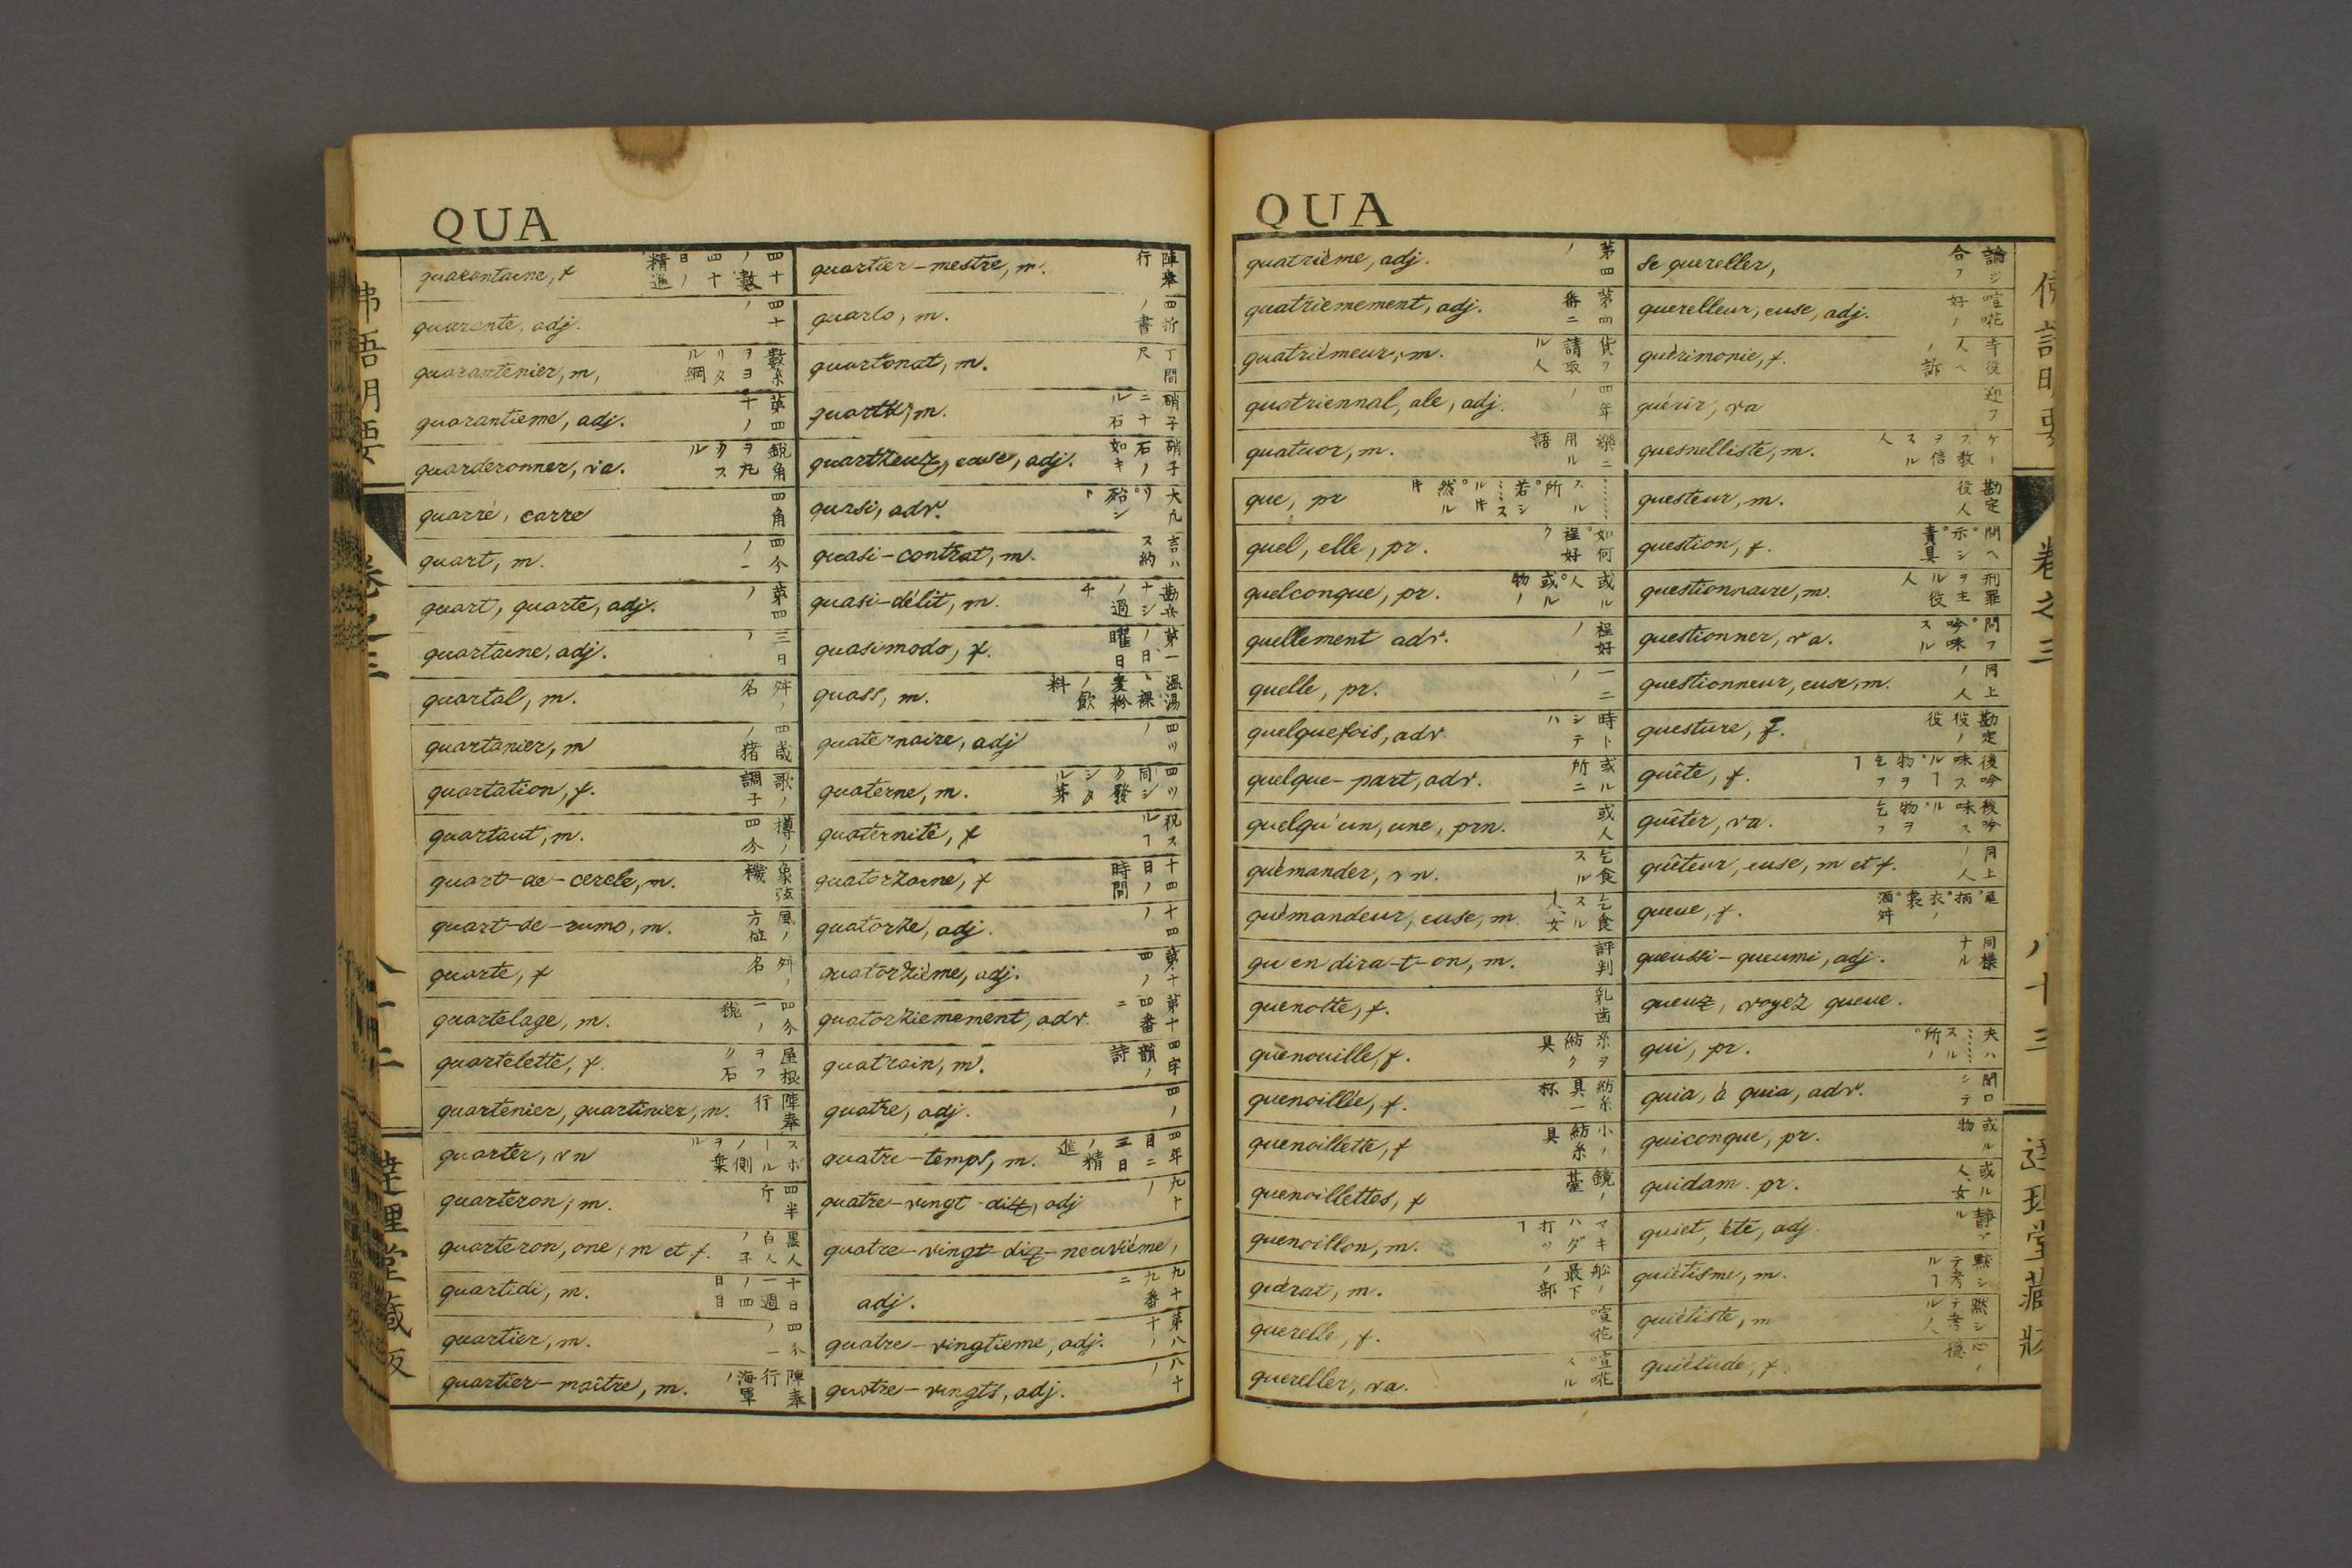 QUA
quarantaine, f 四十ノ數 四十日ノ精進
quarante, adj. 四十ノ
quarantenier, m, 數糸ヲヨリタル綱
quarantieme, adj. 第四十ノ
quarderonner, va. 鋭角ヲ丸クスル
quarré, carré 四角
quart, m. 四分ノ一
quart, quarte, adj. 第四ノ
quartaine, adj. 三日ノ
quartal, m. 舛ノ名
quartanier, m 四歳ノ猪
quartation, f. 歌ノ調子
quartaut, m. 樽ノ四分
quart-de-cercle, m. 象弦機
quart-de-rumo, m. 風ノ方位
quarte, f 舛ノ名
quartelage, m. 四分一ノ税
quartelette, f. 屋根ヲフク石
quartenier, quartinier, m. 陣奉行
quarter, vn
quarteron, m. 四半斤
quarteron, one, m et f. 黒人白人ノ子
quartidi, m. 十日一週ノ四日目
quartier, m. 四分ノ一
quartier-maître, m. 陣奉行 海軍ノ
quartier-mestre, m. 陣奉行
quarto, m. 四折ノ書
quartonat, m. 丁間尺
quartz, m. 硝子ニナル石
quartzeux, euse, adj. 硝子石ノ如キ
quasi, adv.
quasi-contrat, m. 言ハス約
quasi-délit, m.
quasimodo, f. 第一ノ日曜日
quass, m. 温湯ト裸麦粉ノ飲料
quaternaire, adj 四ツノ
quaterne, m. 四ツ同シク發シタル第
quaternité, f 祝スルヿ
quatorzaine, f 十四日ノ時間
quatorze, adj. 十四ノ
quatorzième, adj. 第十四ノ
quatorziemement, adv. 第十四番ニ
quatrain, m. 四字韻ノ詩
quatre, adj. 四ノ
quatre-temps, m. 四年目ニ三日ノ精進
quatre-vingt-dix, adj 九十ノ
quatre-vingt-dix-neuvième,
adj. 九十九番ニ
quatre-vingtieme, adj. 第八十ノ
quatre-vingts, adj. 八十ノ
QUA
quatrième, adj. 第四ノ
quatriemement, adj. 第四番ニ
quatriémeur, m. 貨ヲ請取ル人
quatriennal, ale, adj. 四年ノ
quatuor, m. 樂ニ用ル語
que, pr
quel, elle, pr. 如何程。好ク
quelconque, pr. 或ル人。或ル物ノ
quellement adv. 程好ノ
quelle, pr. 一二ノ
quelquefois, adv. 時トシテハ
quelque-part, adv. 或ル所ニ
quelqu'un, une, prn. 或人
quémander, vn. 乞食スル
quémandeur, euse, m. 乞食スル人、女
qu en dira-t-on, m. 評判
quenotte, f. 乳齒
quenouille, f. 糸ヲ紡ク具
quenoillée, f. 紡糸具一杯
quenoillette, f 小ノ紡糸具
quenoillettes, f 鏡ノ臺
quenoillon, m. マキハダ打ツヿ
quérat, m. 船ノ最下ノ部
querelle, f. 喧嘩
quereller, va. 喧嘩スル
se quereller, 論シ合フ
querelleur, euse, adj. 喧嘩好ノ
quérimonie, f. 寺役人ヘノ訴
quérir, va 迎フ
quesnelliste, m. ケースス教ヲ信スル人
questeur, m. 勘定役人
question, f. 問ヘ。示シ。責具
questionnaire, m. 刑罪ヲ主ル役人
questionner, va. 問フ。吟味スル
questionneur, euse, m. 同上ノ人
questure, f. 勘定役ノ役
quête, f. 後吟味スルヿ。物ヲ乞フヿ
quêter, va. 後吟味スル。物ヲ乞フ
quêteur, euse, m et f. 同上ノ人
queue, f. 尾。柄。衣ノ裳。酒舛
queussi-queumi, adj. 同様ナル
queuz, voyez queue.
qui, pr. 夫ハ……スル所ノ。
quia, à quia, adv. 閉口シテ
quiconque, pr. 或ル物
quidam. pr. 或ル人、女
quiet, ète, adj. 静ナル
quiétisme, m. 黙シテ考ルヿ
quiétiste, m 黙シテ考ル人
quiétude, f. 心ノ穩
卷之三
八十三
達理堂藏版